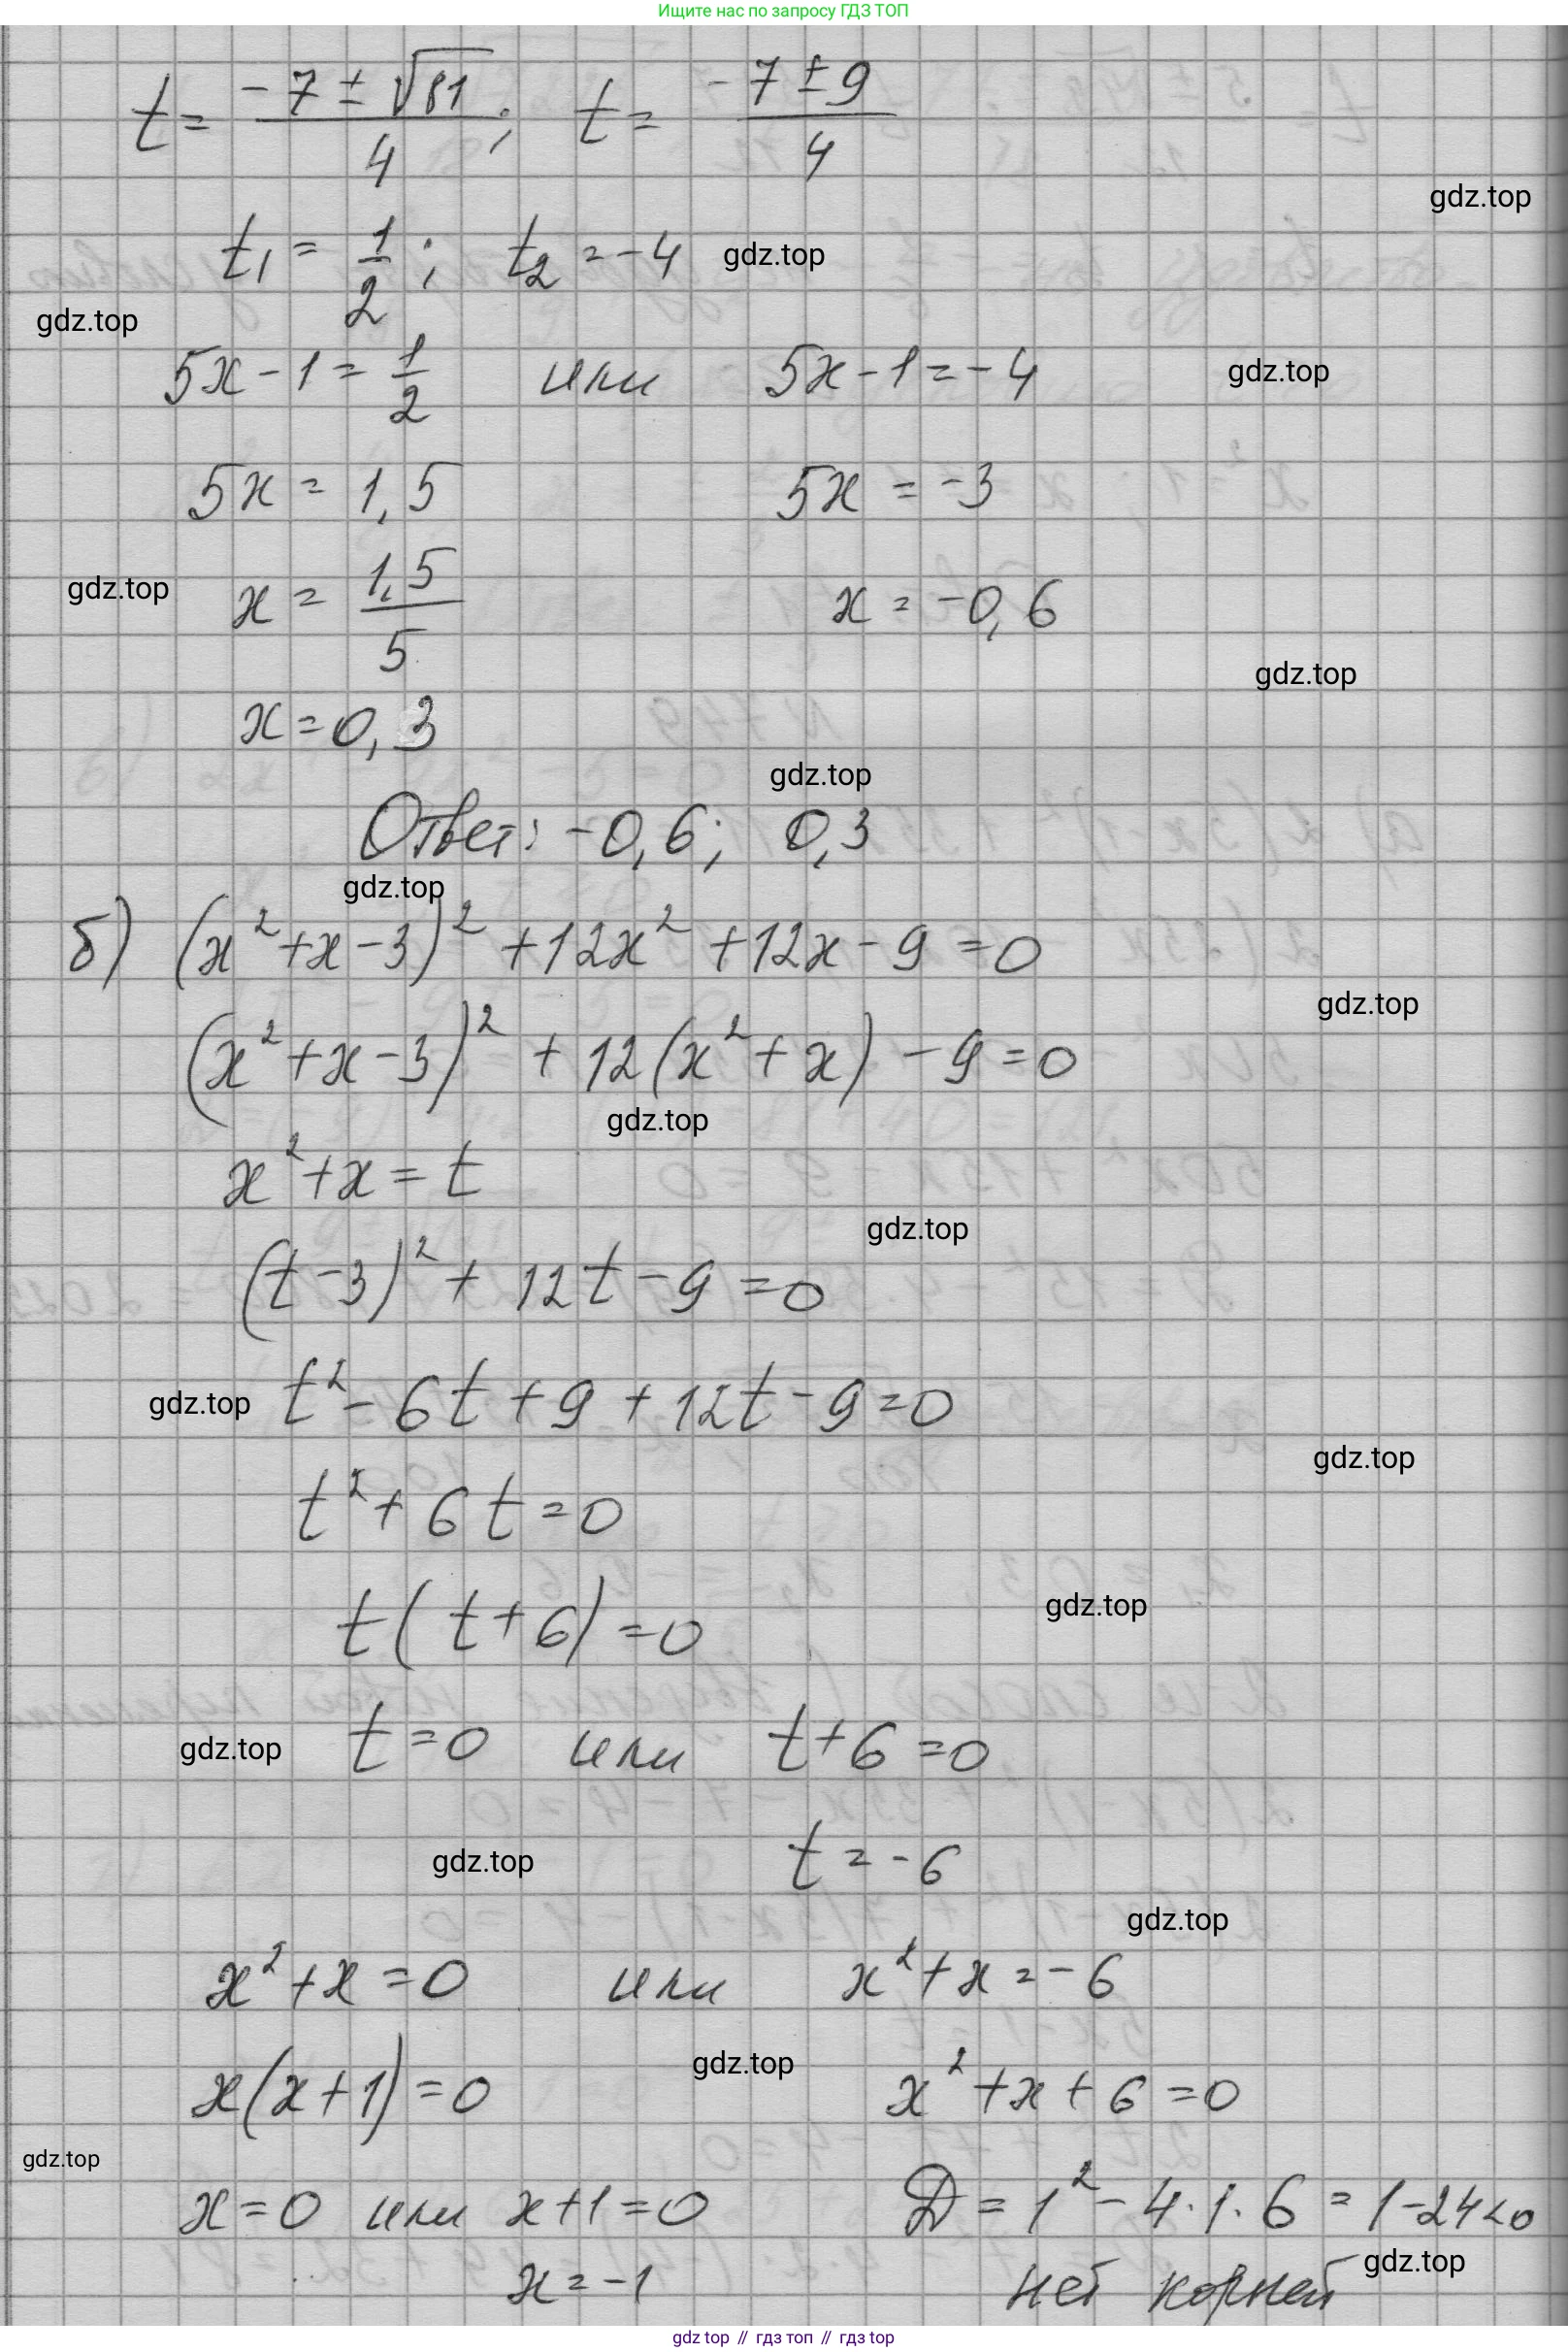 Ищите нас по запросу ГДЗ ТОП
t = (-7 ± √81)/4 ; t = (-7 ± 9)/4
gdz.top
t₁ = 1/2 ; t₂ = -4 gdz.top
gdz.top
5x - 1 = 1/2 или 5x - 1 = -4 gdz.top
5x = 1,5 5x = -3
gdz.top x = 1,5/5 x = -0,6
gdz.top
x = 0,3
gdz.top
Ответ: -0,6; 0,3
gdz.top
б) (x² + x - 3)² + 12x² + 12x - 9 = 0
gdz.top
(x² + x - 3)² + 12(x² + x) - 9 = 0
gdz.top
x² + x = t
gdz.top
(t - 3)² + 12t - 9 = 0
gdz.top t² - 6t + 9 + 12t - 9 = 0
gdz.top
t² + 6t = 0
t(t + 6) = 0 gdz.top
gdz.top t = 0 или t + 6 = 0
gdz.top t = -6
gdz.top
x² + x = 0 или x² + x = -6
gdz.top
x(x + 1) = 0 x² + x + 6 = 0
gdz.top
x = 0 или x + 1 = 0 D = 1² - 4·1·6 = 1 - 24 < 0
x = -1 нет корней gdz.top
gdz top // гдз топ // гдз top